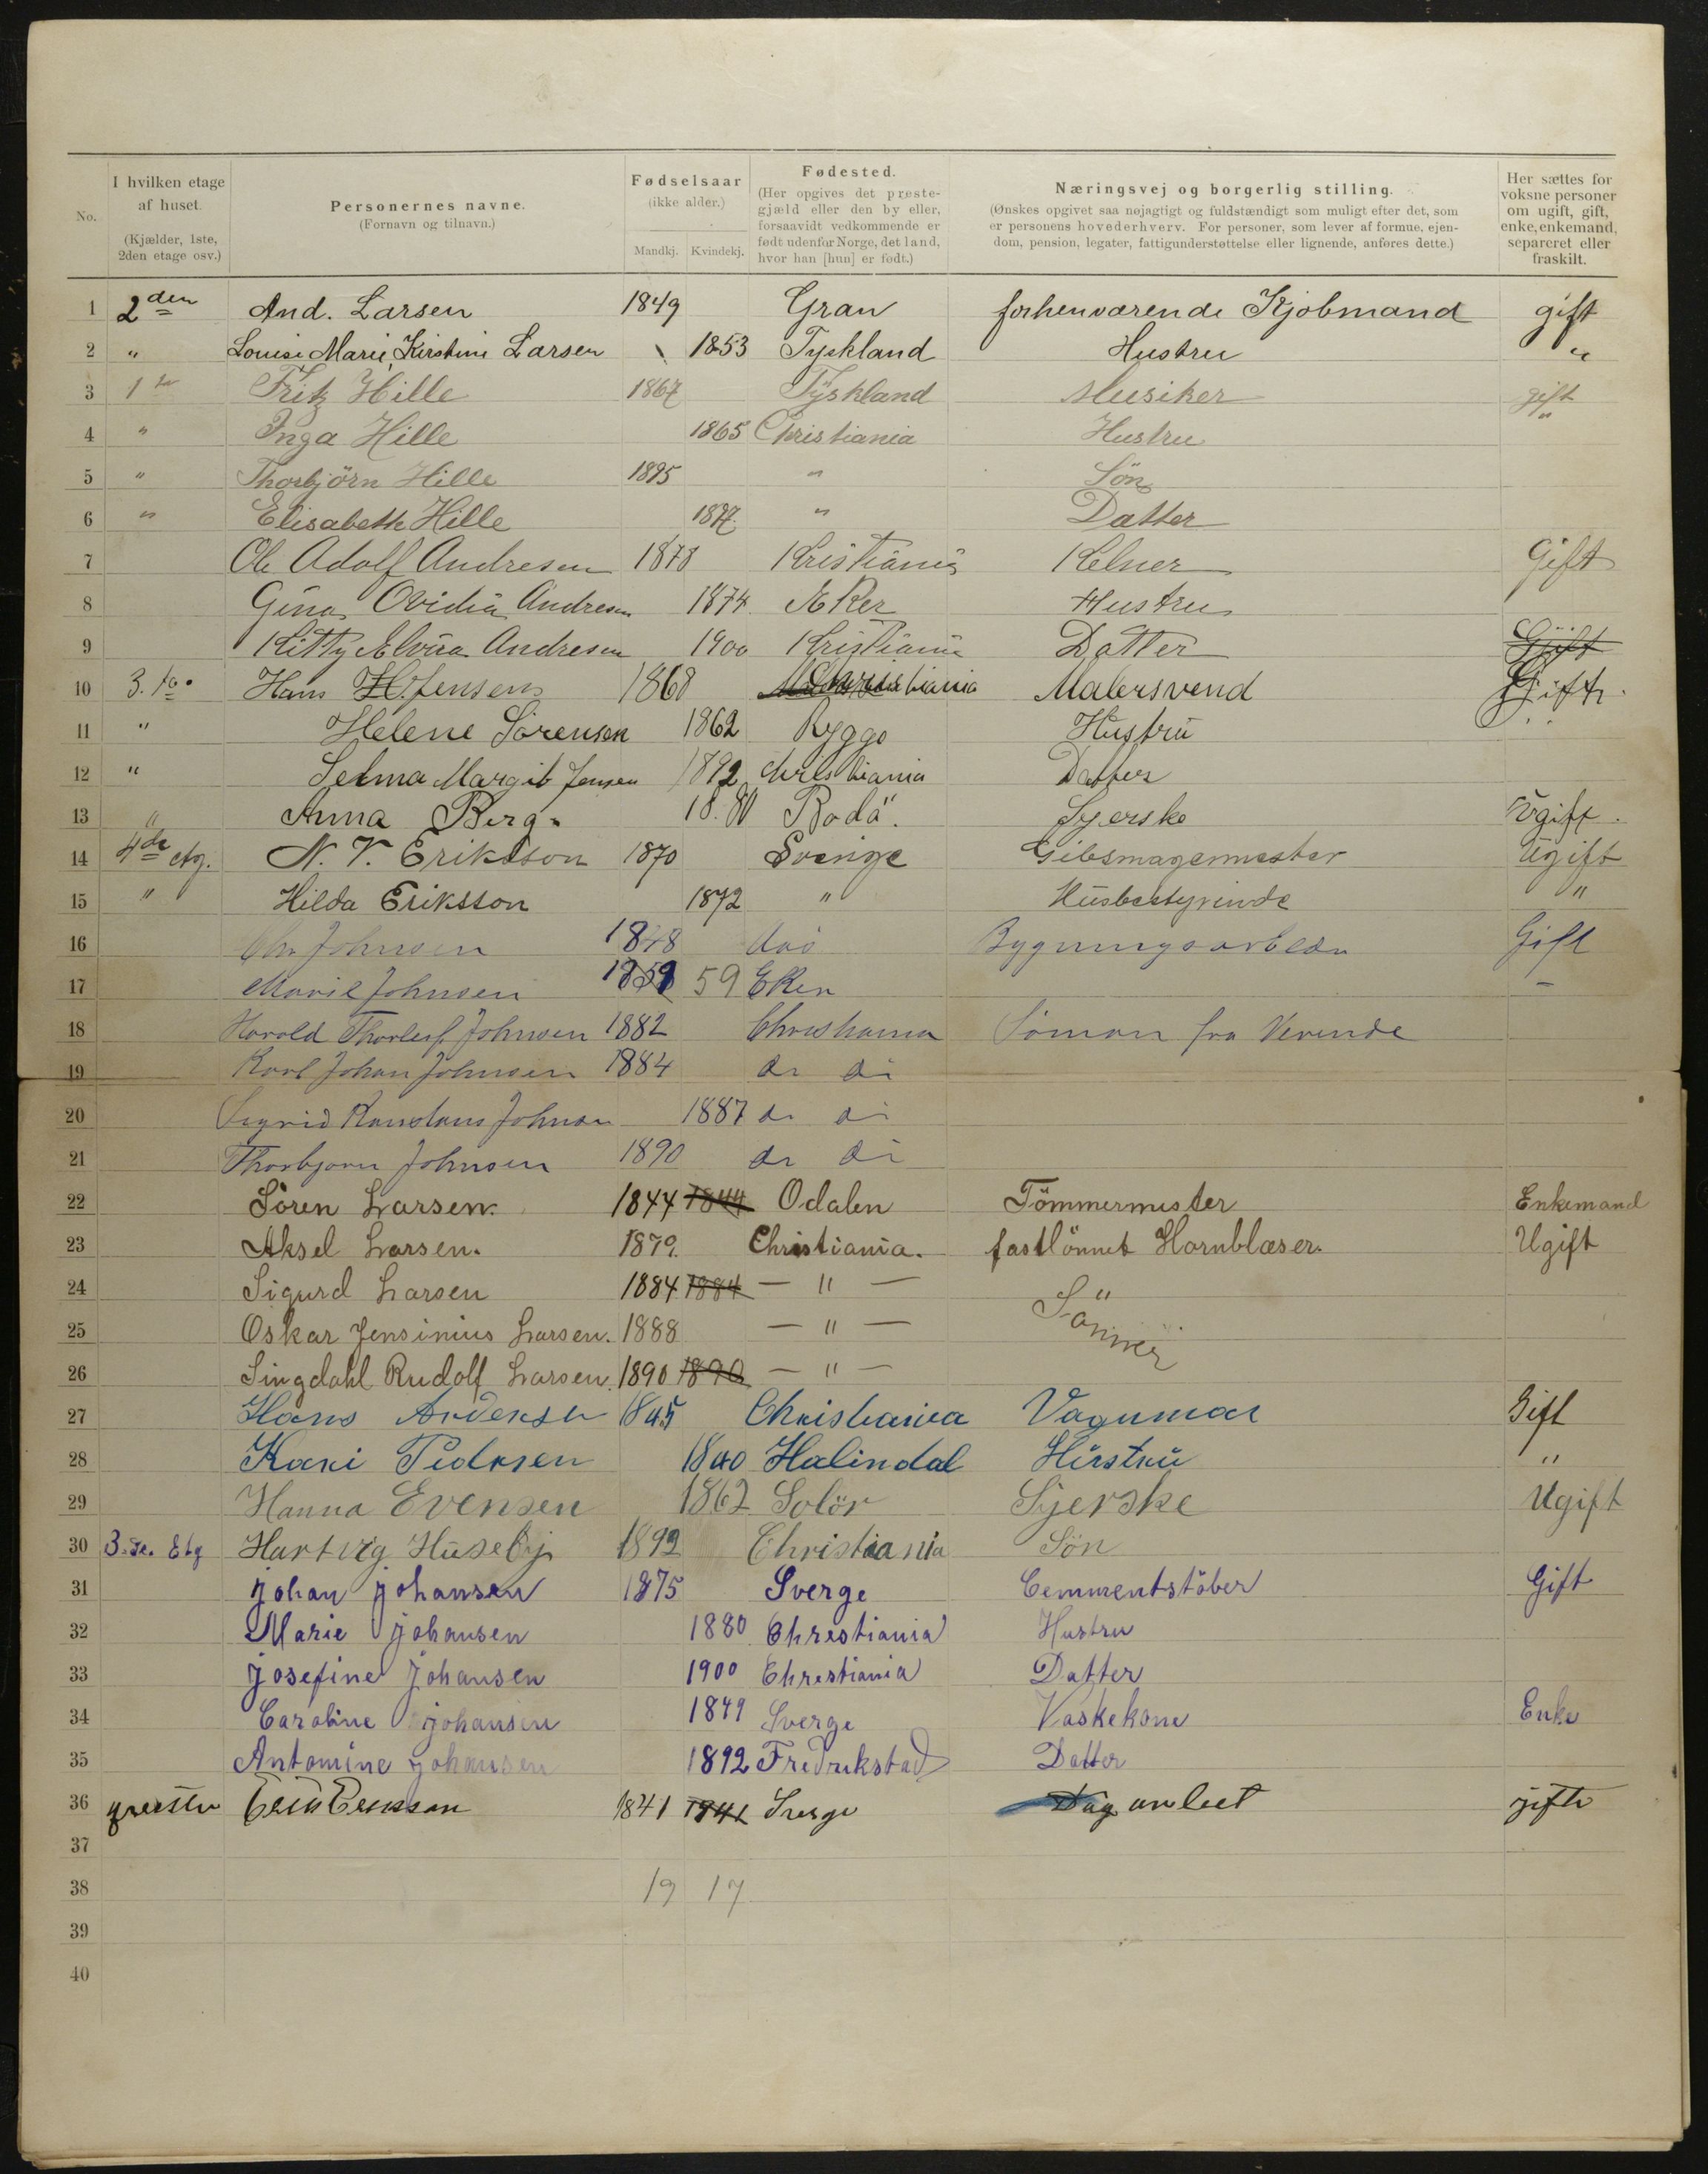 No.
I hvilken etage af huset.
(Kjælder, 1ste, 2den etage osv.)
Personernes navne.
(Fornavn og tilnavn.)
Fødselsaar
(ikke alder.)
Mandkj. Kvindekj.
Fødested.
(Her opgives det prestegjæld eller den by eller, forsaavidt vedkommende er født udenfor Norge, det land, hvor han [hun] er født.)
Næringsvej og borgerlig stilling.
(Ønskes opgivet saa nøjagtigt og fuldstændigt som muligt efter det, som er personens hovederhverv. For personer, som lever af formue, ejendom, pension, legater, fattigunderstøttelse eller lignende, anføres dette.)
Her sættes for voksne personer om ugift, gift, enke, enkemand, separeret eller fraskilt.
1 2den And. Larsen 1849 Gran forhenværende Kjøbmand gift
2 " Louise Marie Kirstine Larsen 1853 Tyskland Hustru "
3 1ste Fritz Hille 1867 Tyskland Musiker gift
4 " Inga Hille 1865 Christiania Hustru "
5 " Thorbjörn Hille 1895 " Sön
6 " Elisabeth Hille 1897 " Datter
7 Ole Adolf Andresen 1878 Kristiania Kelner Gift
8 Gina Ovidia Andresen 1874 Eker Hustru
9 Kitty Elvira Andresen 1900 Kristiania Datter Gift
10 3. Hans H. Jensen 1868 Christiania Malersvend Gift
11 " Helene Sörensen 1862 Rygge Hustru
12 " Selma Margit Jensen 1892 Christiania Datter
13 " Anna Berg 18.80 Rodö. Syerske Ugift.
14 4de etg. N. V. Eriksson 1870 Sverige Gibsmagermester Ugift
15 " Hilda Eriksson 1872 " Husbestyrinde "
16 Chr Johnsen 1848 Aas Bygningsarbeider Gift
17 Marie Johnsen 59 Eker -
18 Harald Thorleif Johnsen 1882 Christiania Sömand
19 Karl Johan Johnsen 1884 do do
20 Sigrid Konstans Johnsen 1887 do do
21 Thorbjorn Johnsen 1890 do do
22 Sören Larsen. 1844 1844 Odalen Tömmermester Enkemand
23 Aksel Larsen. 1879. Christiania. fastlönnet Hornblæser. Ugift
24 Sigurd Larsen 1884 1884 — " —
25 Oskar Jensinius Larsen. 1888 — " — Sönner
26 Singdahl Rudolf Larsen. 1890 1890 — " —
27 Hans Andersen 1845 Christiania Vognmar Gift
28 Kari Pedersen 1840 Halindal Hustru "
29 Hanna Evensen 1862 Solör Syerske Ugift
30 3.je. Etg Hartvig Huseby 1892 Christiania Sön
31 Johan Johansen 1875 Sverge Cemmentstöber Gift
32 Marie Johansen 1880 Chrestiania Hustru
33 Josefine Johansen 1900 Chrestiania Datter
34 Caroline Johansen 1849 Sverge Vaskekone Enke
35 Antomine Johansen 1892 Fredrikstad Datter
36 1841 1841 Sverge gift
37
38 19 17
39
40